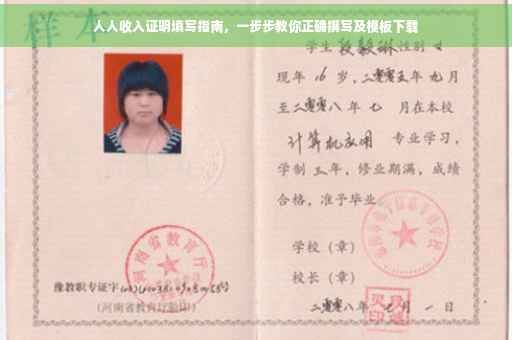 人人收入证明填写指南，一步步教你正确撰写及模板下载
样本
学生 段毅琳 性别 女
现年 16 岁，二零零五年 九月
至二零零八年 七 月在本校
计算机应用 专业学习，
学制 三 年，修业期满，成绩
合格，准予毕业。
学校（章）
校长（章）
二零零八年 七 月 一 日
河南省教育厅
豫教职专证字
（河南省教育厅验印）